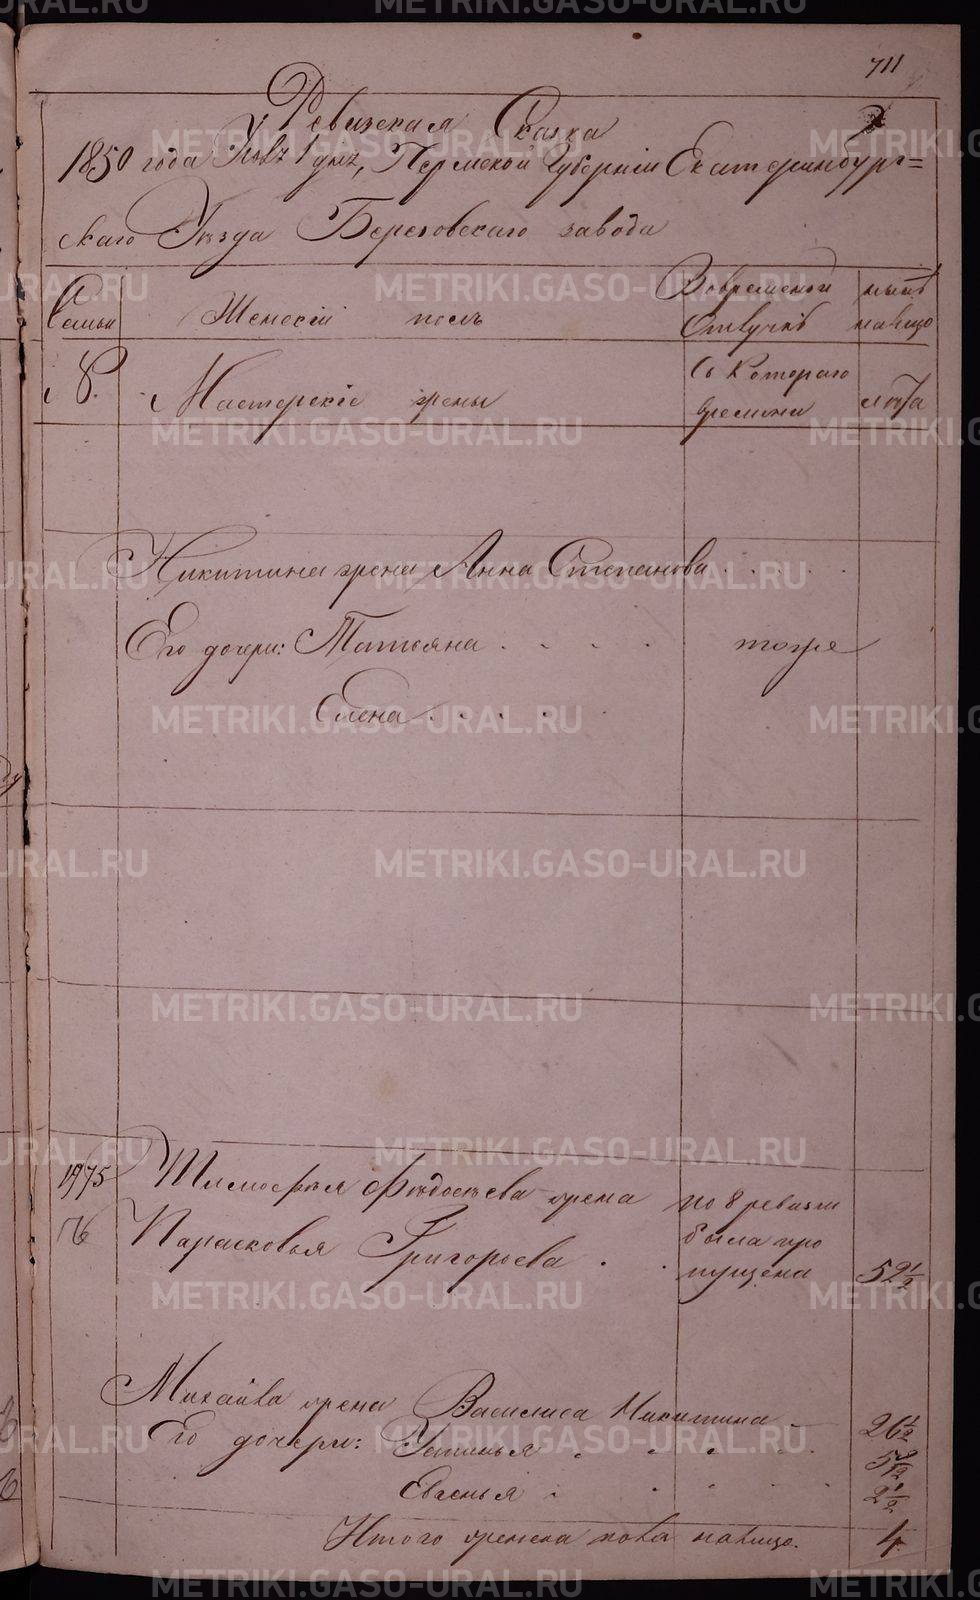 711
Ревизская Сказка
1850 года дня, Пермской Губернiи Екатеринбург=
скаго Уѣзда Березовскаго завода
Семьи Женскiй полъ Во временной отлучкѣ нынѣ налицо
№. Мастерскiе жены Съ котораго времени лѣта
Никитина жена Анна Степанова
Его дочери: Татьяна тоже
Елена
1975 Тимофея жена по 8 ревизiи
76 Парасковья Григорьева была про
пущена 52 1/2
Михайла жена Василиса Никитина 26 1/2
Его дочери: Устинья 5
Евгенья 2 1/2
Итого женска пола налицо. 4
METRIKI.GASO-URAL.RU